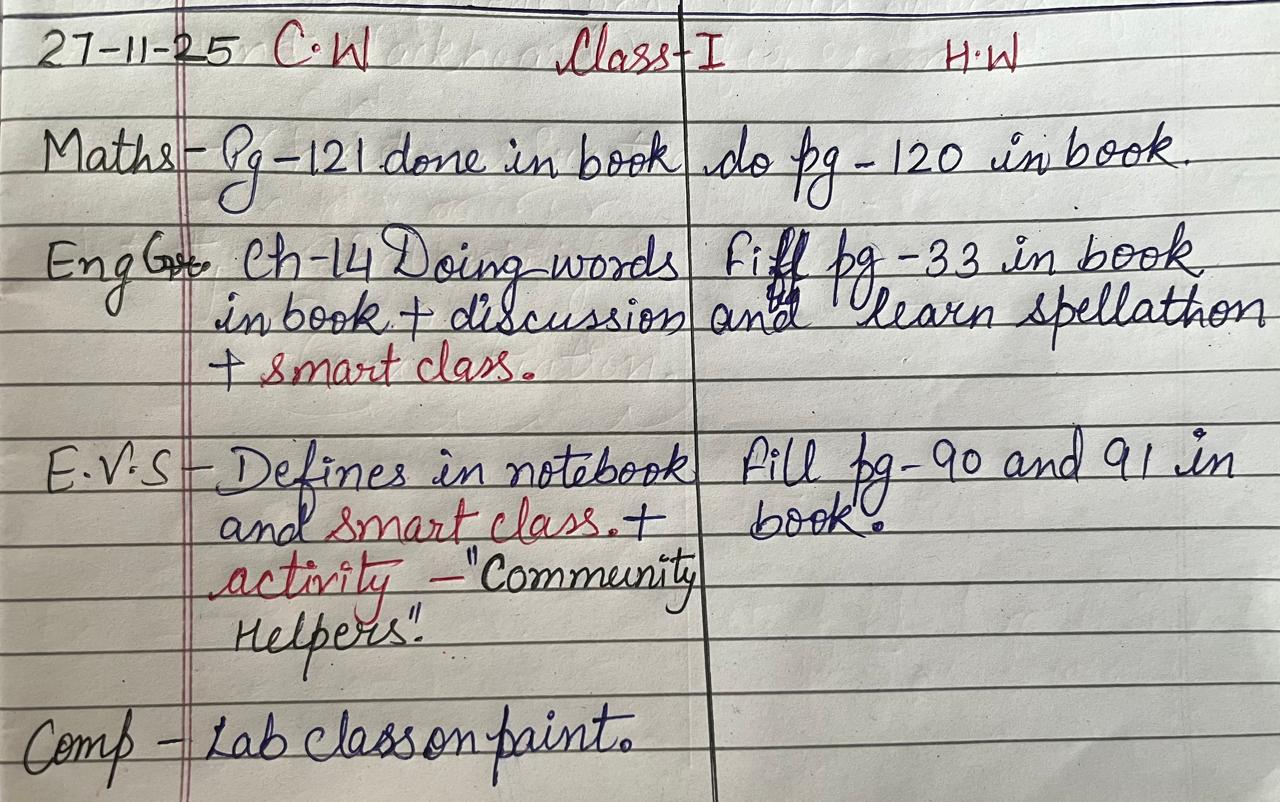 27-11-25 C.W Class-I H.W
Maths - Pg-121 done in book do pg-120 in book.
Eng Ch-14 Doing words Fill pg-33 in book
in book + discussion and learn spellathon
+ smart class.
E.V.S - Defines in notebook Fill pg-90 and 91 in
and smart class. + book.
activity - "Community
Helpers".
Comp - Lab class on paint.